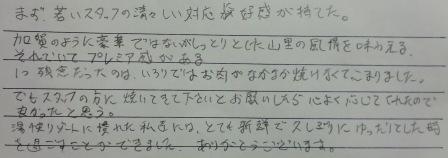 まず、若いスタッフの清々しい対応が好感が持てた。
加賀のように豪華ではないがしっとりとした山里の風情を味わえる、
それでいてプレミア感がある
1つ残念だったのは、いろりではお肉がなかなか焼けなくてこまりました。
でもスタッフの方に焼いてきて下さいとお願いしたら心よく応じてくれたので
良かったと思う。
湯快リゾートに慣れた私達には、とても新鮮で久しぶりにゆったりとした時
を過ごすことができました。ありがとうございます。